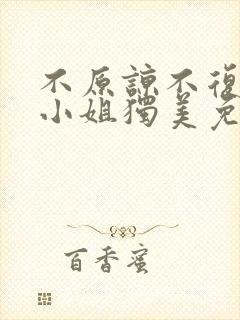 不原諒不復
小姐獨美免
百香蜜